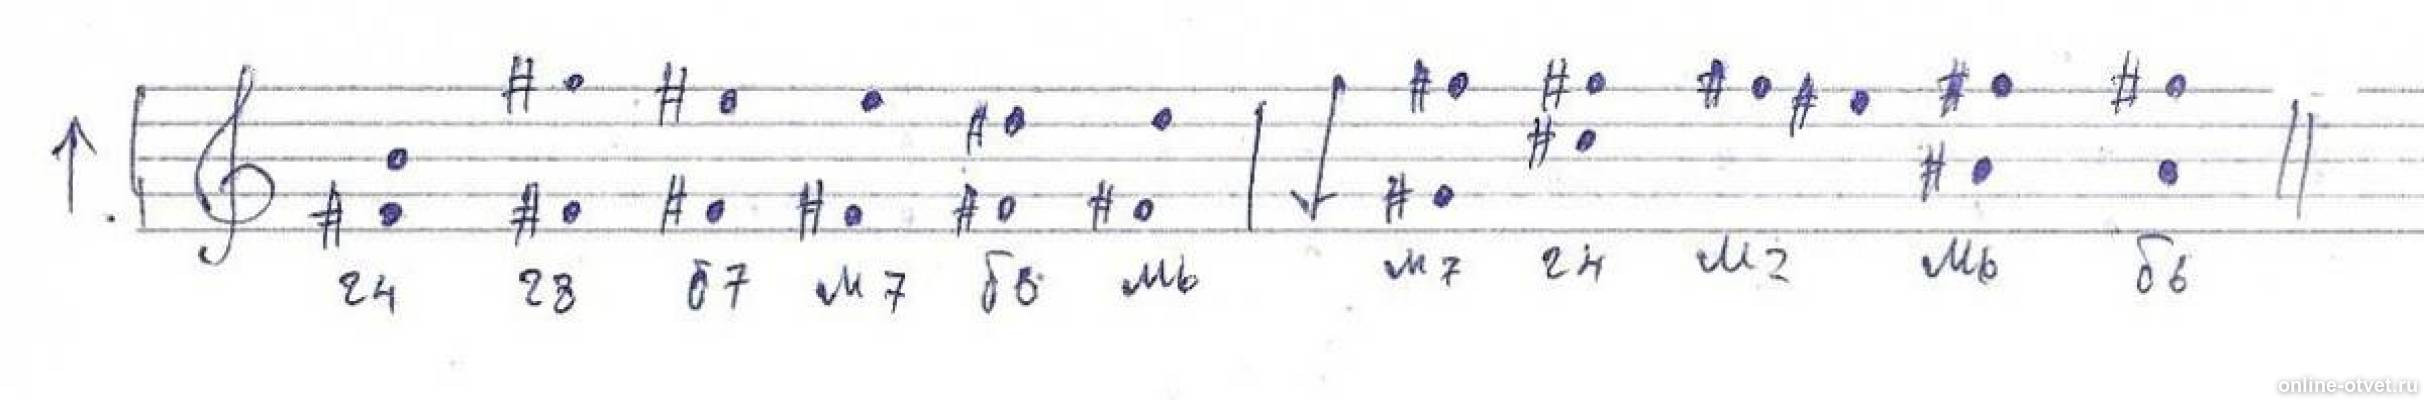 ч4 ч8 б7 м7 б6 м6 м7 ч4 м2 м6 б6
online-otvet.ru